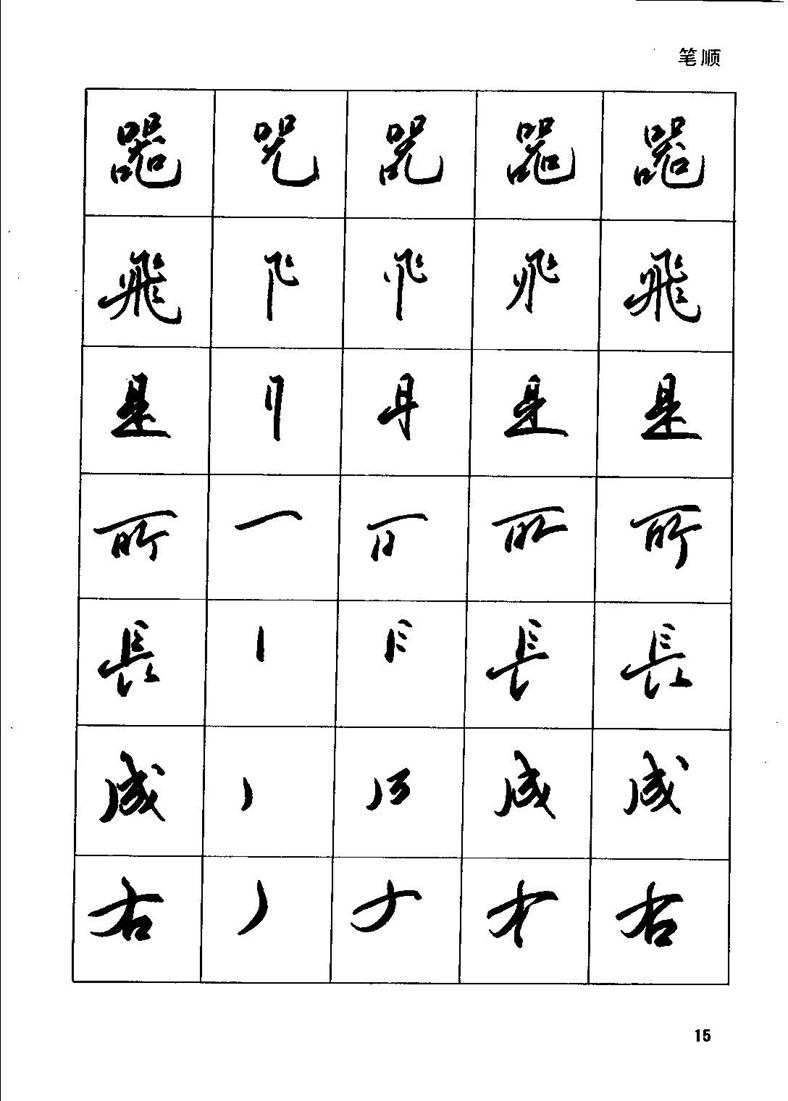 笔顺
器 器
飛 飛
是 是
所 所
長 長
成 成
右 右
15